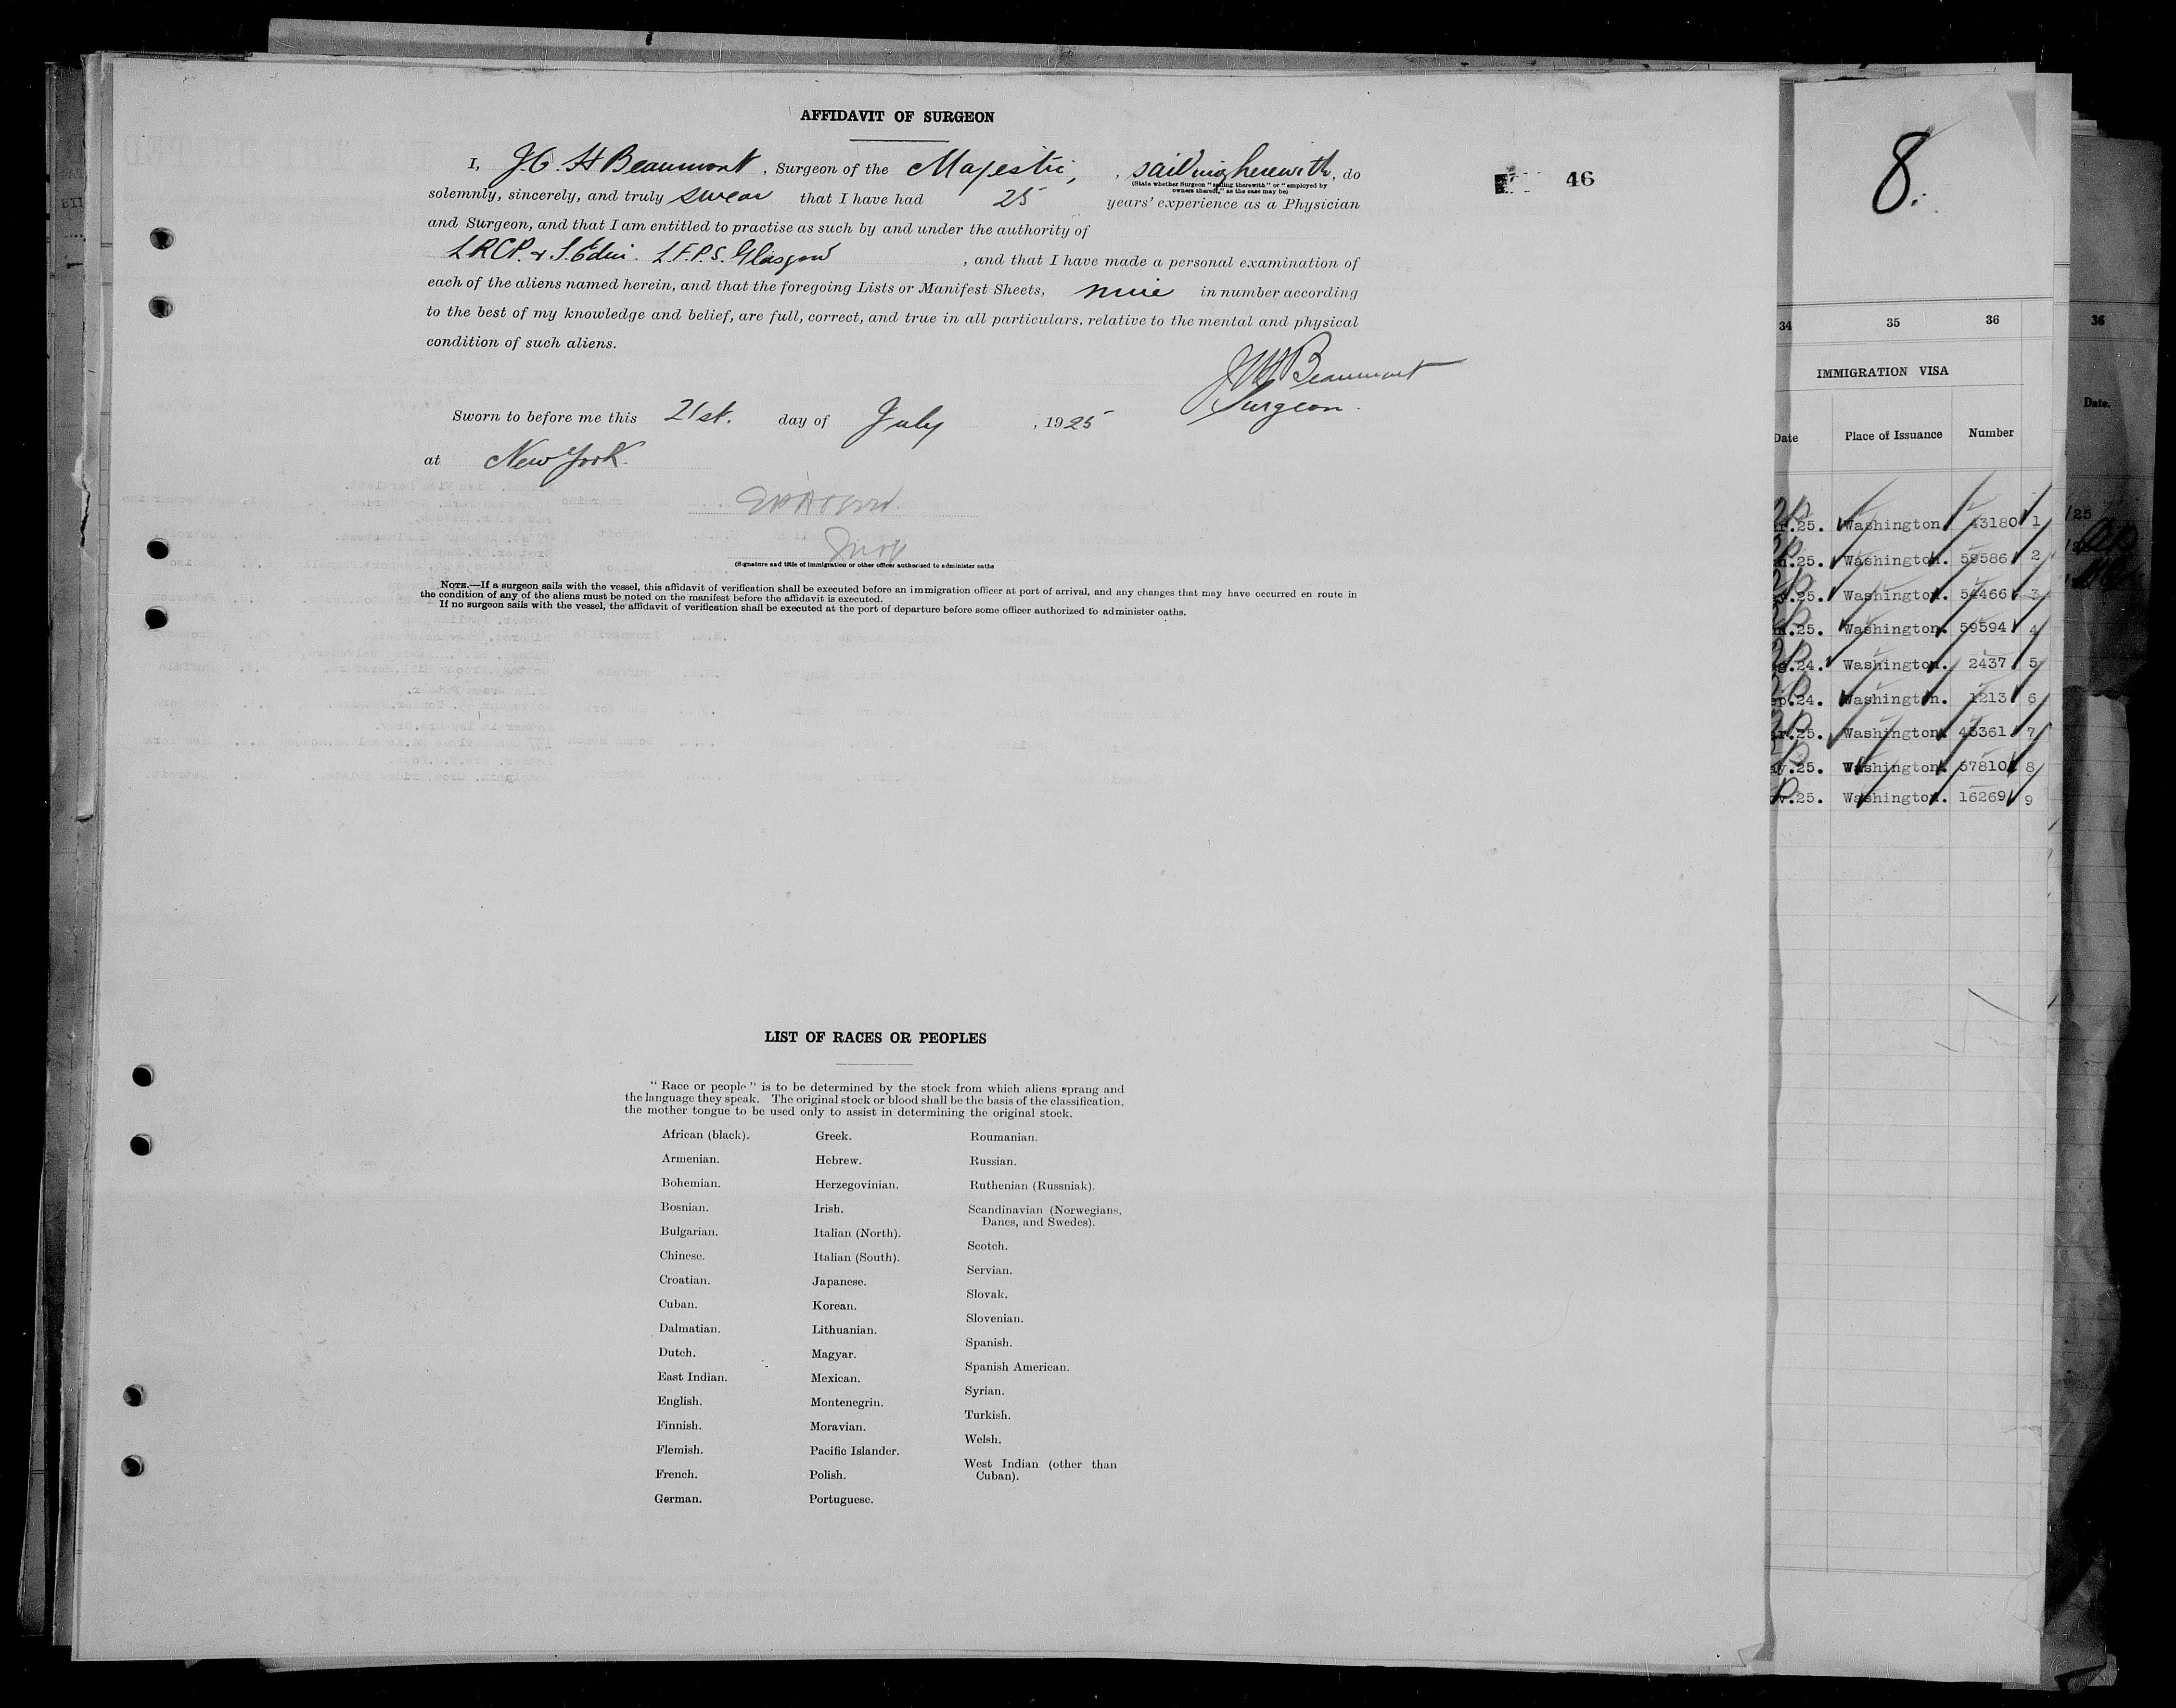 AFFIDAVIT OF SURGEON
I, J.C. H Beaumont, Surgeon of the Majestic, , sailing herewith, do
(State whether Surgeon "sailing therewith" or "employed by
owners thereof," as the case may be)
solemnly, sincerely, and truly swear that I have had 25 years' experience as a Physician
and Surgeon, and that I am entitled to practise as such by and under the authority of
L.R.C.P. & S. Edin. L.F.P.S. Glasgow , and that I have made a personal examination of
each of the aliens named herein, and that the foregoing Lists or Manifest Sheets, nine in number according
to the best of my knowledge and belief, are full, correct, and true in all particulars, relative to the mental and physical
condition of such aliens.
Beaumont
Surgeon.
Sworn to before me this 21st. day of July , 1925
at New York.
(Signature and title of immigration or other officer authorized to administer oaths
NOTE.—If a surgeon sails with the vessel, this affidavit of verification shall be executed before an immigration officer at port of arrival, and any changes that may have occurred en route in
the condition of any of the aliens must be noted on the manifest before the affidavit is executed.
If no surgeon sails with the vessel, the affidavit of verification shall be executed at the port of departure before some officer authorized to administer oaths.
LIST OF RACES OR PEOPLES
"Race or people" is to be determined by the stock from which aliens sprang and
the language they speak. The original stock or blood shall be the basis of the classification,
the mother tongue to be used only to assist in determining the original stock.
African (black).
Armenian.
Bohemian.
Bosnian.
Bulgarian.
Chinese.
Croatian.
Cuban.
Dalmatian.
Dutch.
East Indian.
English.
Finnish.
Flemish.
French.
German.
Greek.
Hebrew.
Herzegovinian.
Irish.
Italian (North).
Italian (South).
Japanese.
Korean.
Lithuanian.
Magyar.
Mexican.
Montenegrin.
Moravian.
Pacific Islander.
Polish.
Portuguese.
Roumanian.
Russian.
Ruthenian (Russniak).
Scandinavian (Norwegians,
Danes, and Swedes).
Scotch.
Servian.
Slovak.
Slovenian.
Spanish.
Spanish American.
Syrian.
Turkish.
Welsh.
West Indian (other than
Cuban).
46
8.
34 35 36
IMMIGRATION VISA
Date Place of Issuance Number
.25. Washington 43180 1
.25. Washington. 59586 2
.25. Washington. 54466 3
.25. Washington. 59594 4
.24. Washington. 2437 5
.24. Washington. 1213 6
.25. Washington. 45361 7
.25. Washington. 57810 8
.25. Washington. 16269 9
36
Date.
/25